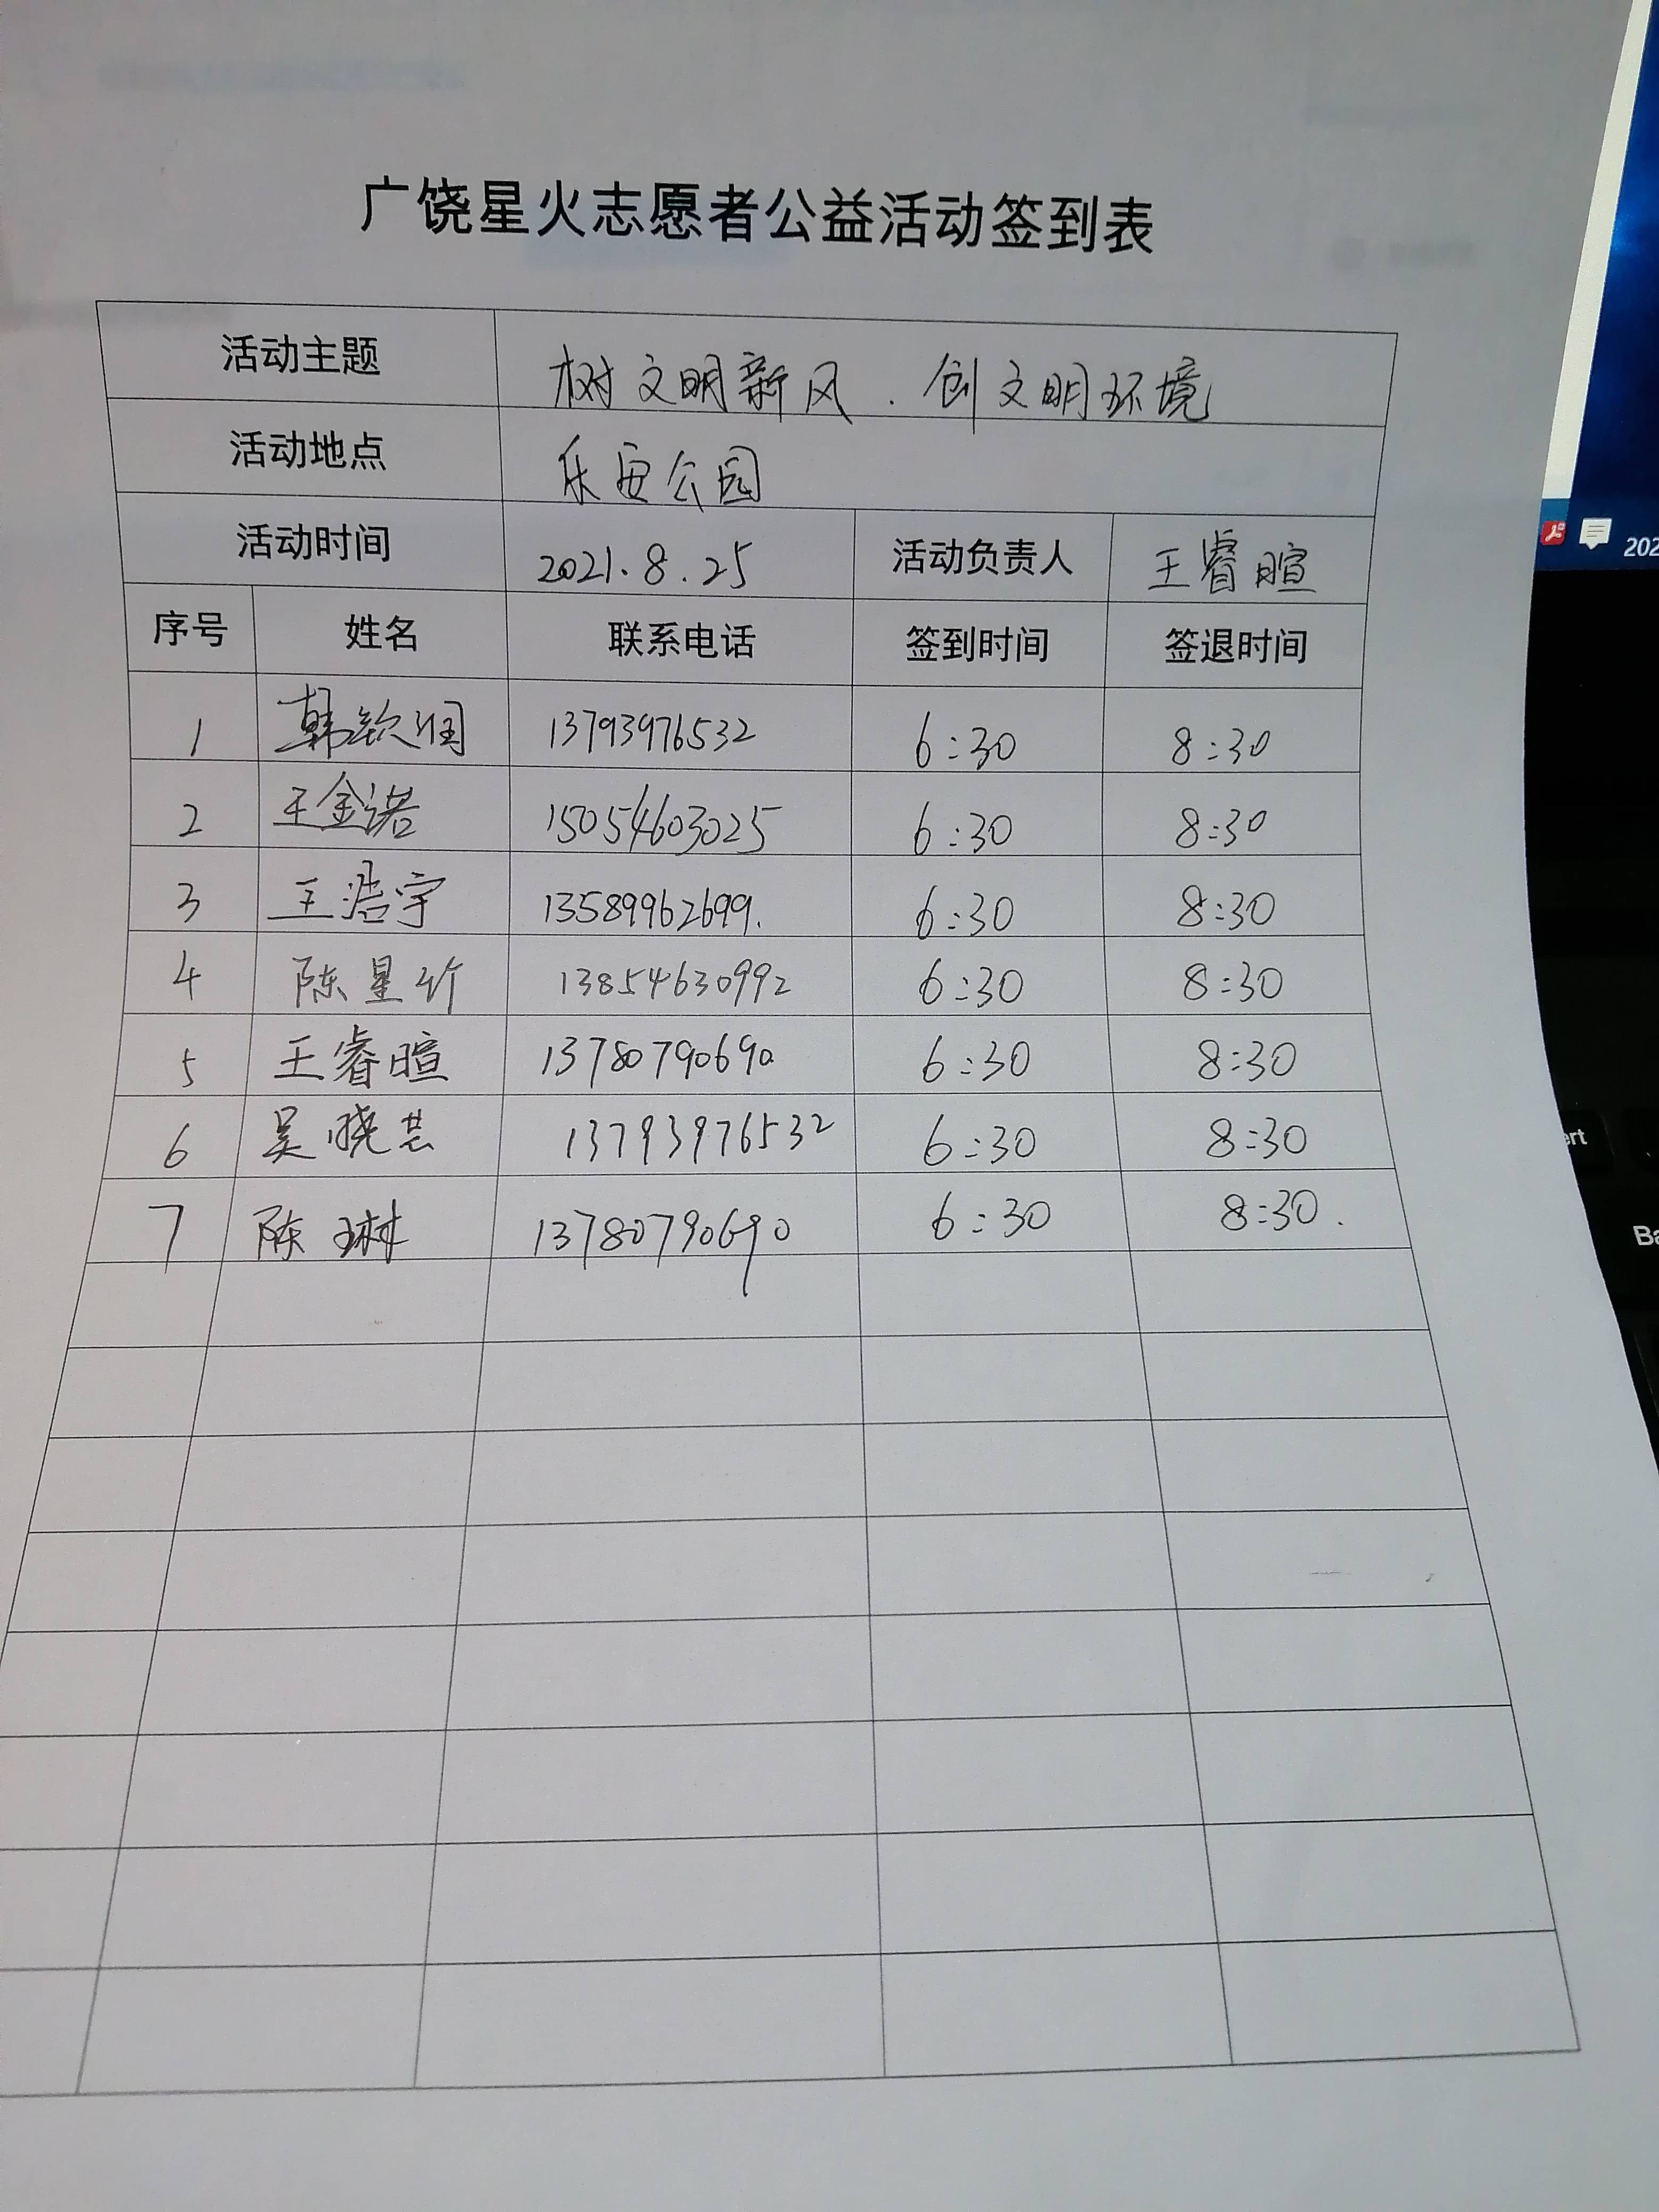 广饶星火志愿者公益活动签到表
活动主题 树文明新风.创文明环境
活动地点 乐安公园
活动时间 2021.8.25 活动负责人 王睿暄
序号 姓名 联系电话 签到时间 签退时间
1 韩钦润 13793976532 6:30 8:30
2 王金诺 15054603025 6:30 8:30
3 王浩宇 13589962699. 6:30 8:30
4 陈星 13854630992 6:30 8:30
5 王睿暄 13780790690 6:30 8:30
6 吴晓芸 13793976532 6:30 8:30
7 陈琳 13780790690 6:30 8:30.
202
Ba